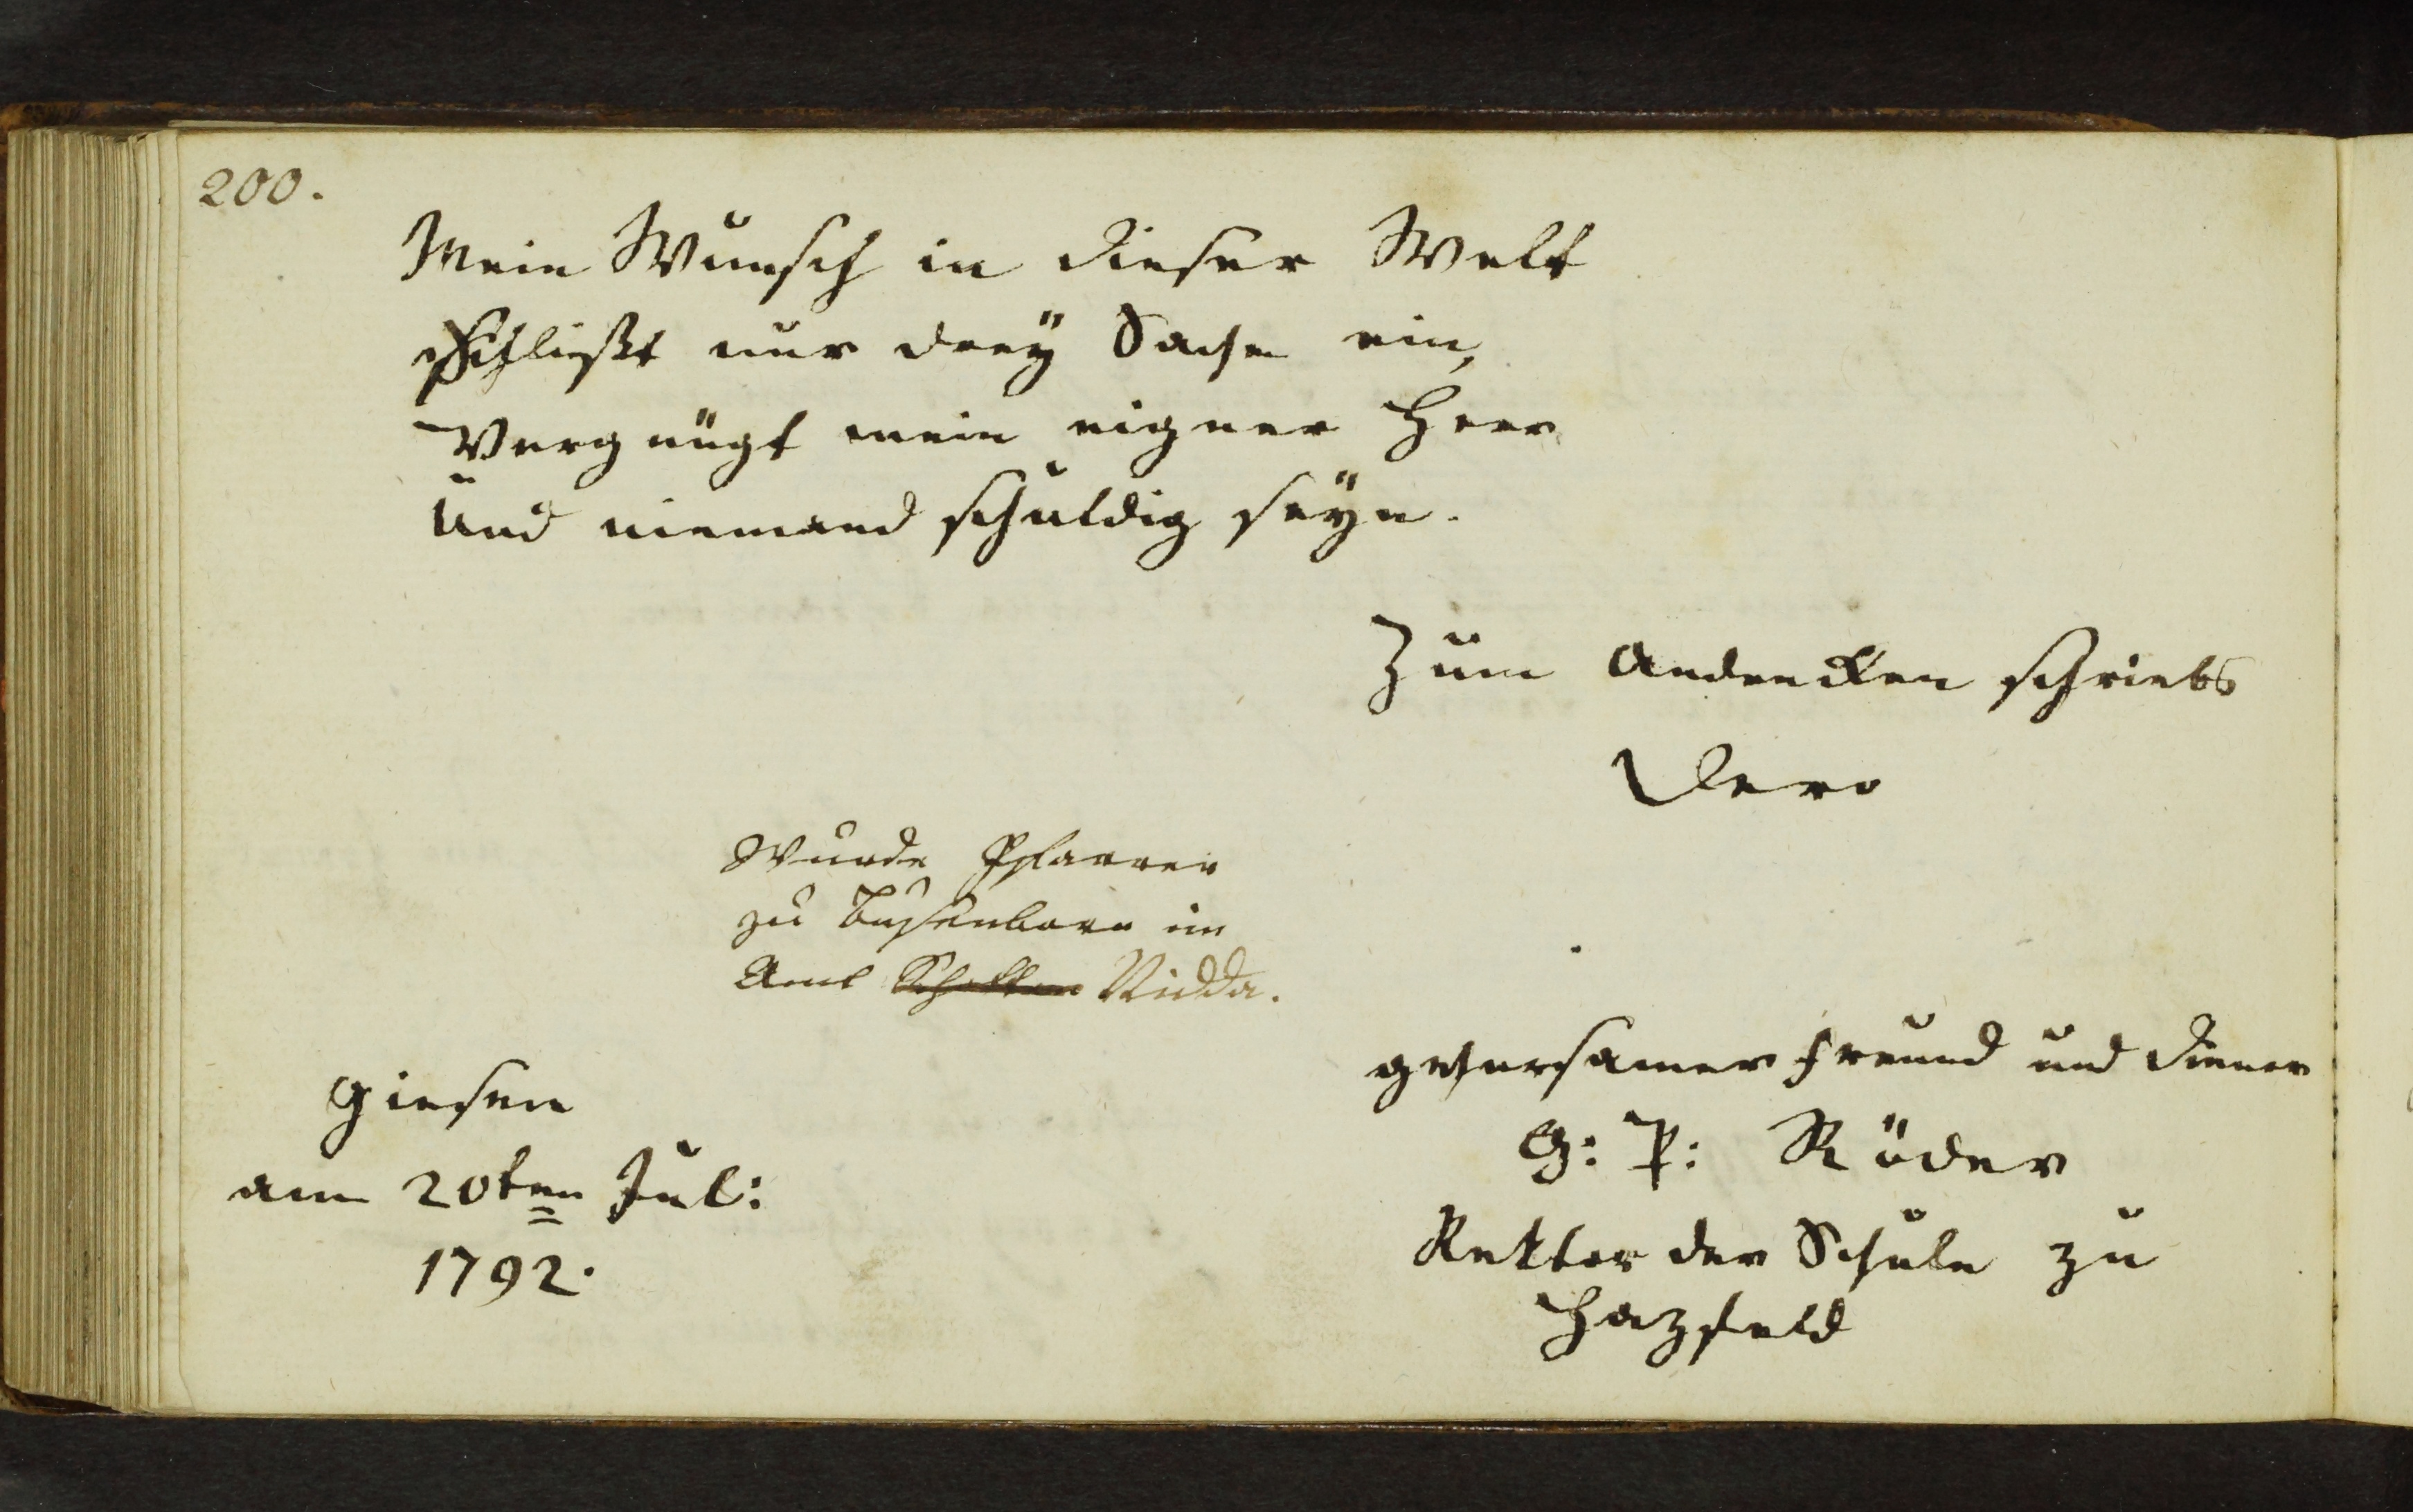 200.
Mein Wunsch in dieser Welt
schließt nur dreÿ Sachen ein,
Vergnügt mein eigner Herr
Und niemand schuldig seÿn.
Zum Andencken schriebs
Dero
Wurde Pfarrer
zu Busenborn im
Amt Schotten Nidda.
gehorsamer Freund und Diener
G: P: Röder
Rektor der Schule zu
Hazfeld
Giesen
am 20ten Jul:
1792.